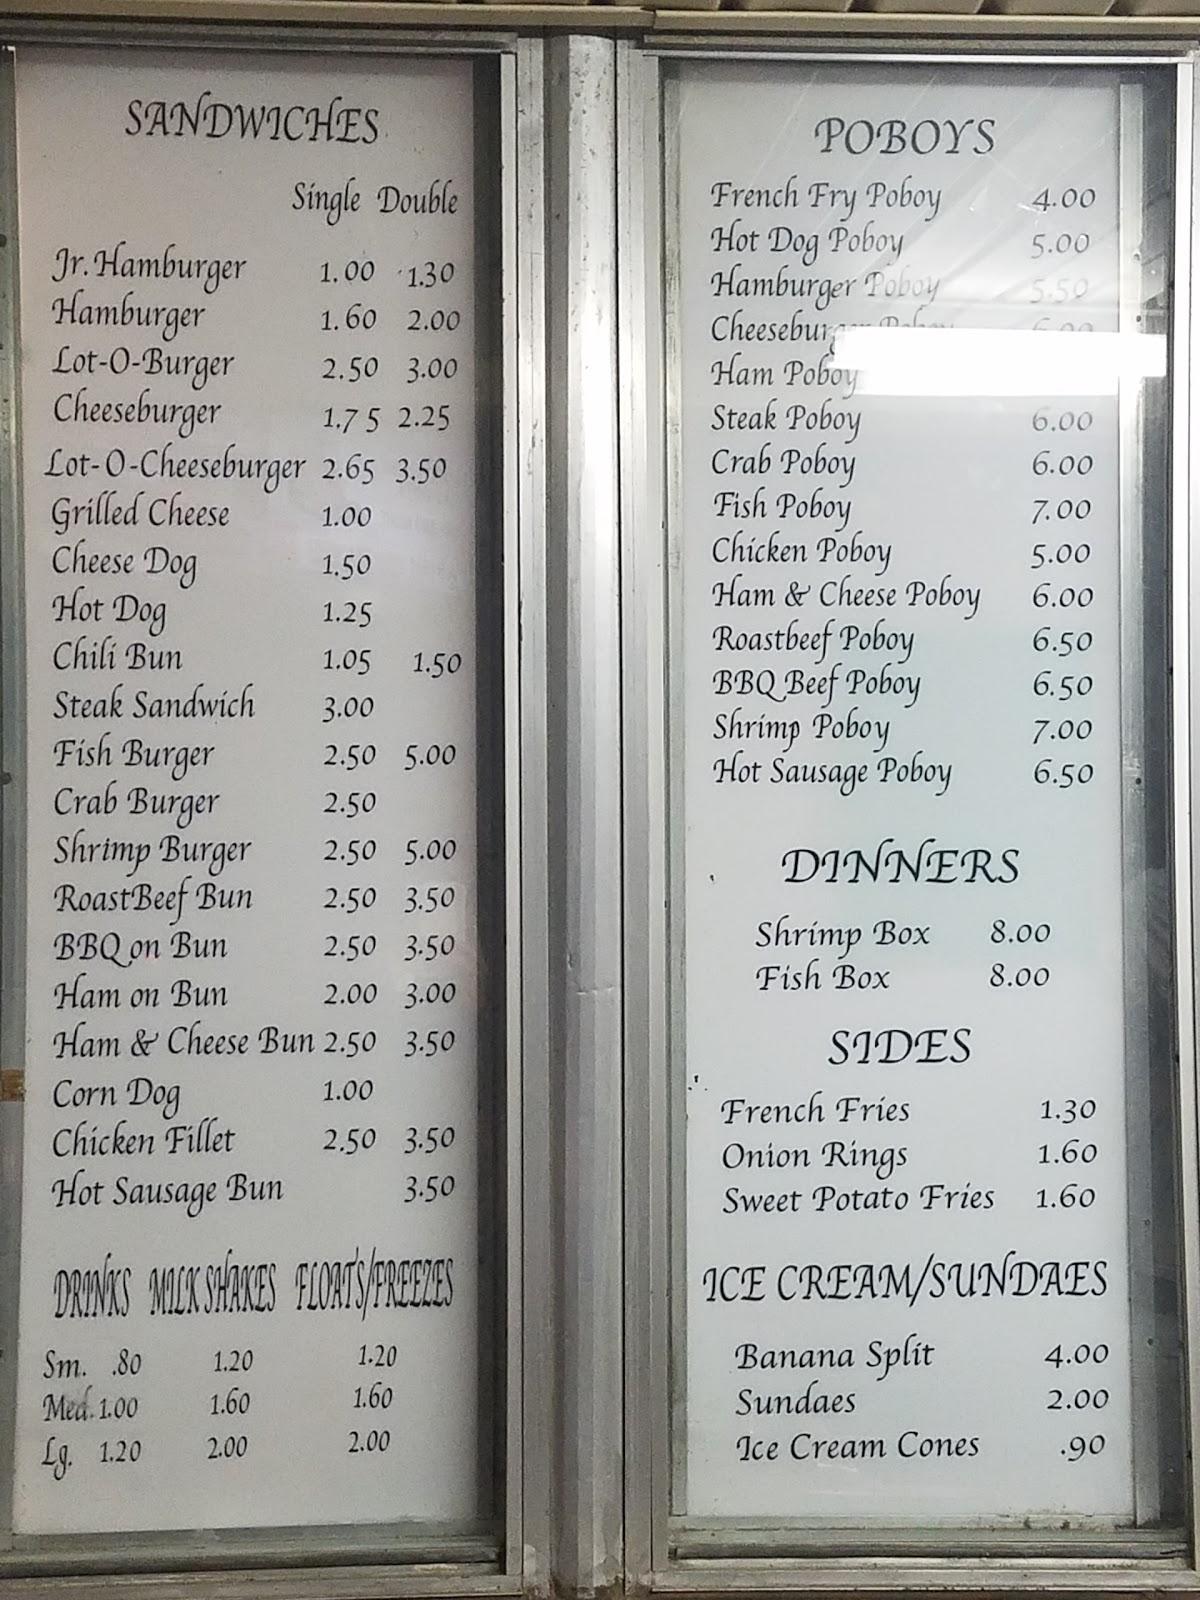 SANDWICHES
Single Double
Jr. Hamburger 1.00 1.30
Hamburger 1.60 2.00
Lot-O-Burger 2.50 3.00
Cheeseburger 1.75 2.25
Lot-O-Cheeseburger 2.65 3.50
Grilled Cheese 1.00
Cheese Dog 1.50
Hot Dog 1.25
Chili Bun 1.05 1.50
Steak Sandwich 3.00
Fish Burger 2.50 5.00
Crab Burger 2.50
Shrimp Burger 2.50 5.00
RoastBeef Bun 2.50 3.50
BBQ on Bun 2.50 3.50
Ham on Bun 2.00 3.00
Ham & Cheese Bun 2.50 3.50
Corn Dog 1.00
Chicken Fillet 2.50 3.50
Hot Sausage Bun 3.50
DRINKS MILK SHAKES FLOATS/FREEZES
Sm. .80 1.20 1.20
Med. 1.00 1.60 1.60
Lg. 1.20 2.00 2.00
POBOYS
French Fry Poboy 4.00
Hot Dog Poboy 5.00
Hamburger Poboy 5.50
Cheeseburger Poboy 6.00
Ham Poboy
Steak Poboy 6.00
Crab Poboy 6.00
Fish Poboy 7.00
Chicken Poboy 5.00
Ham & Cheese Poboy 6.00
Roastbeef Poboy 6.50
BBQ Beef Poboy 6.50
Shrimp Poboy 7.00
Hot Sausage Poboy 6.50
DINNERS
Shrimp Box 8.00
Fish Box 8.00
SIDES
French Fries 1.30
Onion Rings 1.60
Sweet Potato Fries 1.60
ICE CREAM/SUNDAES
Banana Split 4.00
Sundaes 2.00
Ice Cream Cones .90